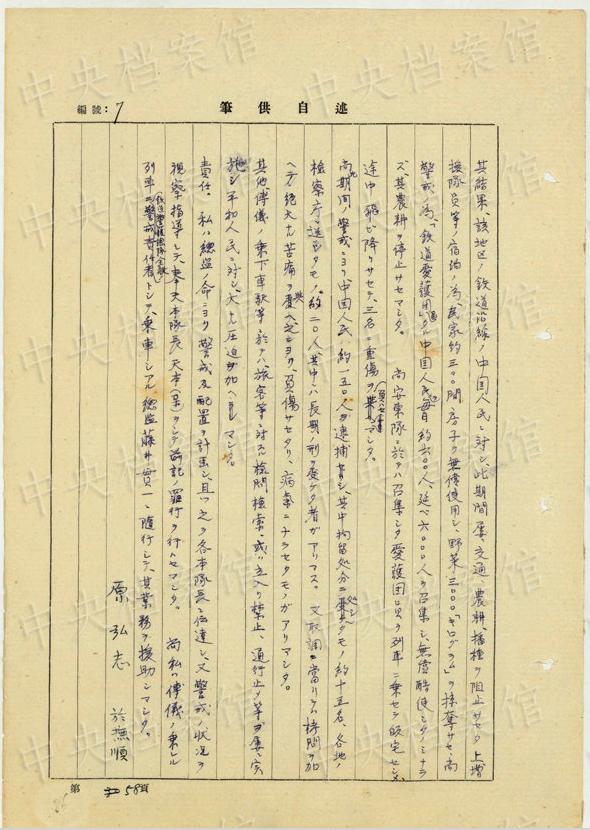 中央档案馆
編號：7
筆供自述
其結果、該地区ノ鉄道沿線ノ中国人民ニ対シ、此期間 交通、農耕、播種ヲ阻止サセタ上 増
援隊員等ノ宿泊ノ為、民家約三〇〇間房子ヲ無償使用シ、野菜三〇〇〇「キログラム」ヲ掠奪サセ、尚
警戒ノ為、「鉄道愛護団」タル中国人民毎日約六〇〇人、延ベ六〇〇〇人ヲ召集シ無償酷使シタノミナラ
ズ、其農耕ヲ停止サセマシタ。 尚安東隊ニ於テハ召集シタ愛護団員ヲ列車ニ乗セテ帰宅セシメ、
途中飛ビ降リサセテ、三名ニ重傷ヲ マシタ。
尚期間ノ警戒ニヨリ中国人民ハ約一五〇人ガ逮捕 、其中拘留処分ニ タモノ約十五名、各地ノ
検察庁ニ送 タモノ約二〇人、其中ニハ長期ノ刑ヲ受ケタ者ガアリマス。 又取調ニ當リテハ拷問ヲ加
ヘテ絶大ナル苦痛ヲ 之ニヨリ負傷サセタリ、病気ニナラセタモノガアリマシタ。
其他溥儀ノ乗下車駅等ニ於テハ、旅客等ニ対スル検問検索、或ハ立入リ禁止、通行止メ等ヲ 実
施シ平和人民ニ対シ、大ナル圧迫ヲ加ヘマシタ。
責任。 私ハ総監ノ命ニヨリ警戒及配置ヲ計画シ、且ツ之ヲ各本隊長ニ伝達シ、又警戒ノ状況ヲ
視察指導シテ、奉天本隊長 ヲシテ前記ノ罪行ヲ行ハセマシタ。 尚私ハ溥儀ノ乗レル
列車ニ警戒責任者トシテ、乗車シアル総監藤井貫一ニ随行シテ、其業務ヲ援助シマシタ。
原弘志 於撫順
第 58頁